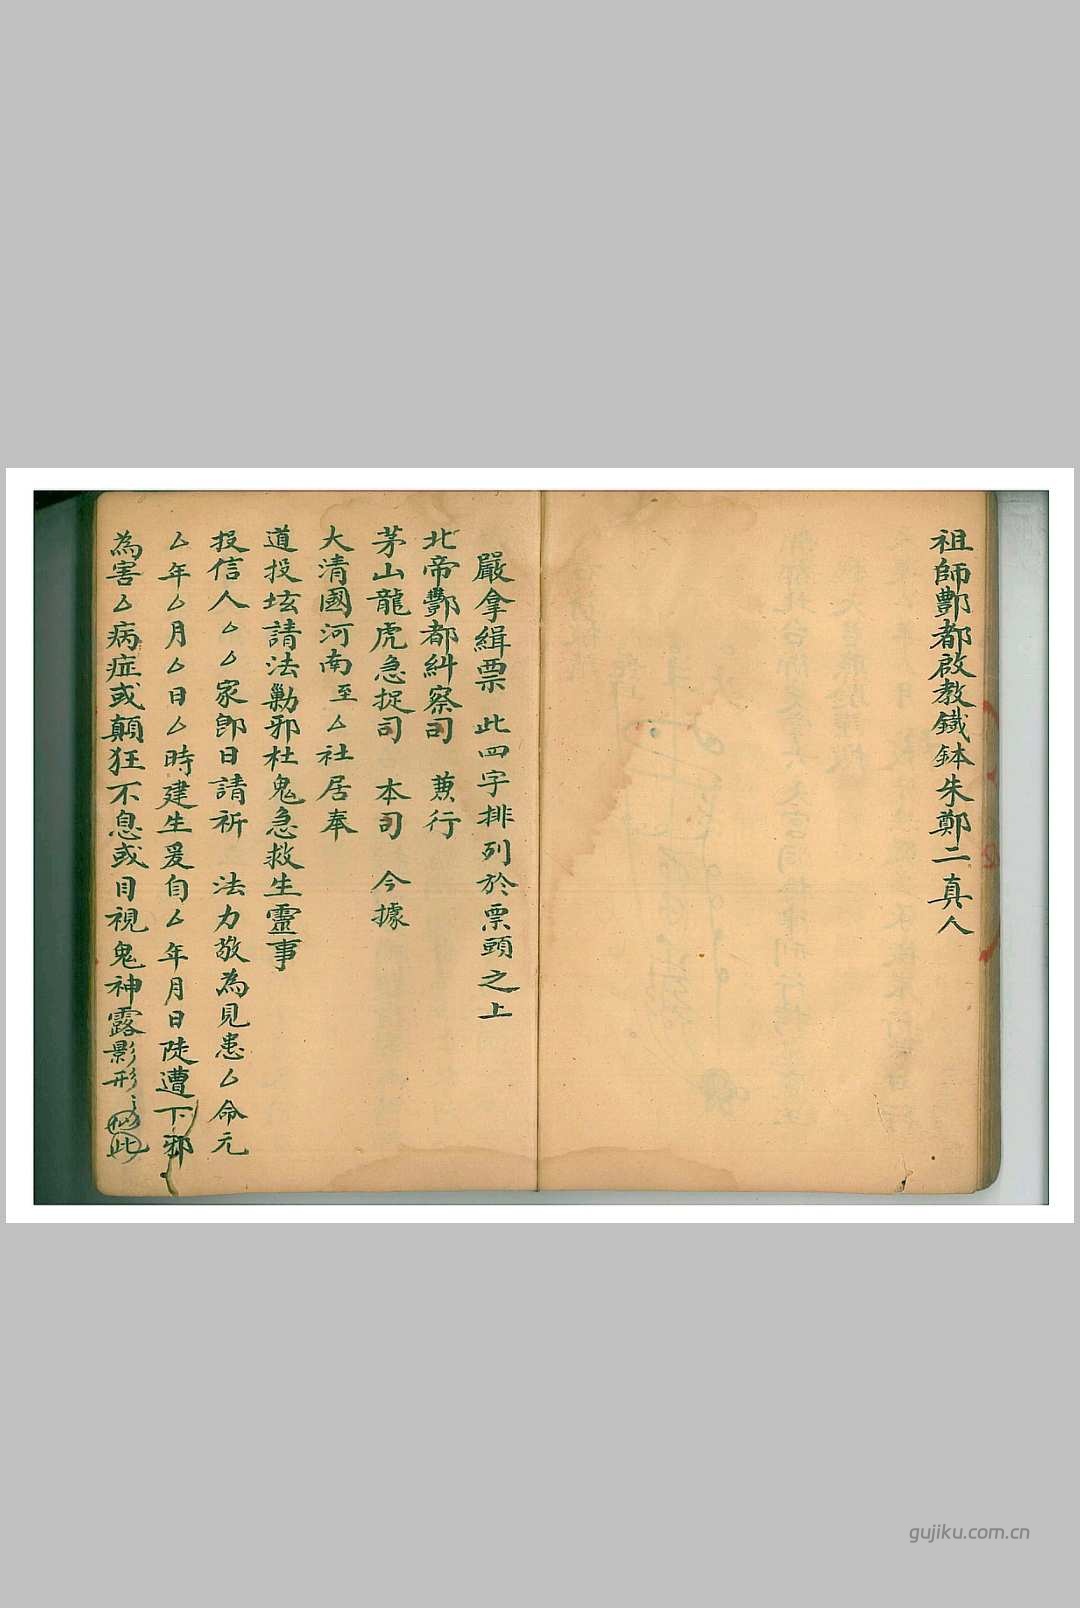 祖師酆都啟教鐵鉢朱鄭二真人
嚴拿緝票 此四字排列於票頭之上
北帝酆都糾察司 兼行
茅山龍虎急捉司 本司 今據
大清國河南至厶社居奉
道投坛請法勦邪杜鬼急救生靈事
投信人厶厶家卽日請祈 法力敬為見患厶命元
厶年厶月厶日厶時建生爰自厶年月日陡遭下邪
為害厶病症或顛狂不息或目視鬼神露影形
gujiku.com.cn